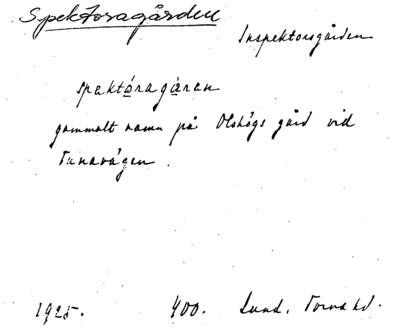 Spektoragården
Inspektorsgården
spektóragáran
gammalt namn på Olshögs gård vid
Tunavägen.
1925. 400. Lund, Torna hd.